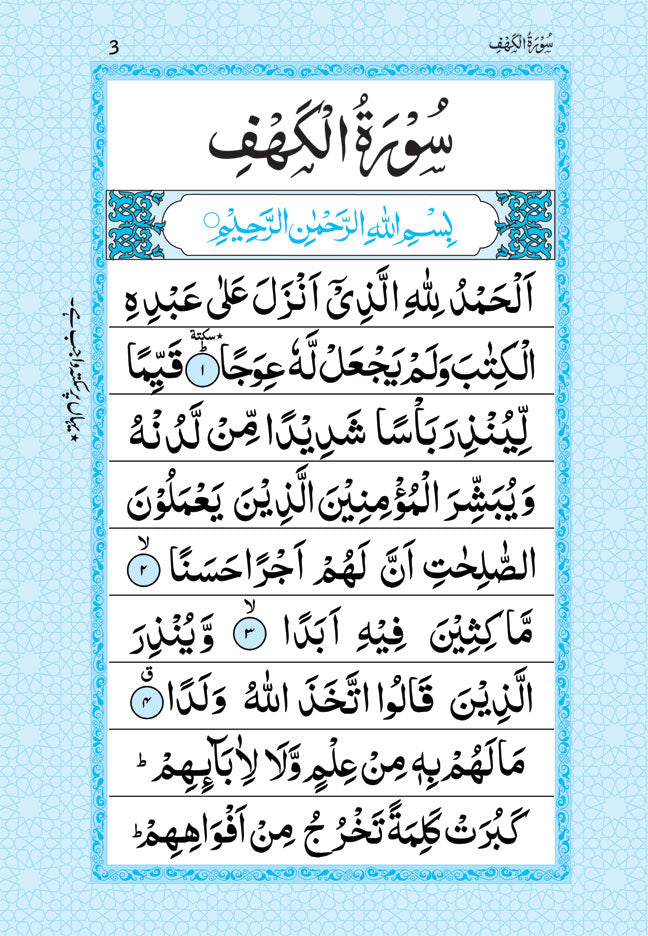 3
سُوْرَةُ الْكَهْفِ
سُوْرَةُ الْكَهْفِ
بِسْمِ اللهِ الرَّحْمٰنِ الرَّحِيْمِ
اَلْحَمْدُ لِلّٰهِ الَّذِيْۤ اَنْزَلَ عَلٰى عَبْدِهِ
الْكِتٰبَ وَلَمْ يَجْعَلْ لَّهٗ عِوَجًا ٭سكتة ؕ۱ قَيِّمًا
لِّيُنْذِرَ بَاْسًا شَدِيْدًا مِّنْ لَّدُنْهُ
وَيُبَشِّرَ الْمُؤْمِنِيْنَ الَّذِيْنَ يَعْمَلُوْنَ
الصّٰلِحٰتِ اَنَّ لَهُمْ اَجْرًا حَسَنًا ۙ۲
مَّاكِثِيْنَ فِيْهِ اَبَدًا ۙ۳ وَّيُنْذِرَ
الَّذِيْنَ قَالُوا اتَّخَذَ اللهُ وَلَدًا ۴ق
مَا لَهُمْ بِهٖ مِنْ عِلْمٍ وَّلَا لِاٰبَآئِهِمْ ؕ
كَبُرَتْ كَلِمَةً تَخْرُجُ مِنْ اَفْوَاهِهِمْ ؕ
٭ یہاں پر سکتہ واجب ہے۔